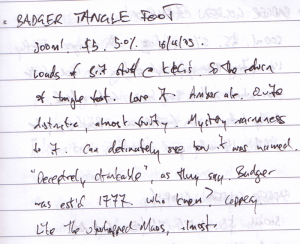 • BADGER TANGLE FOOT
500ml £3. 5.0%. 16/4/23.
Loads of Brit stuff @ KEG's. So the return
of Tangle foot. Love it. Amber ale. Quite
distinctive, almost fruity. Mystery warmness
to it. Can definately see how it was named.
"Deceptively drinkable", as they say. Badger
was est'd 1777. Who knew? Coppery
Like the almost.